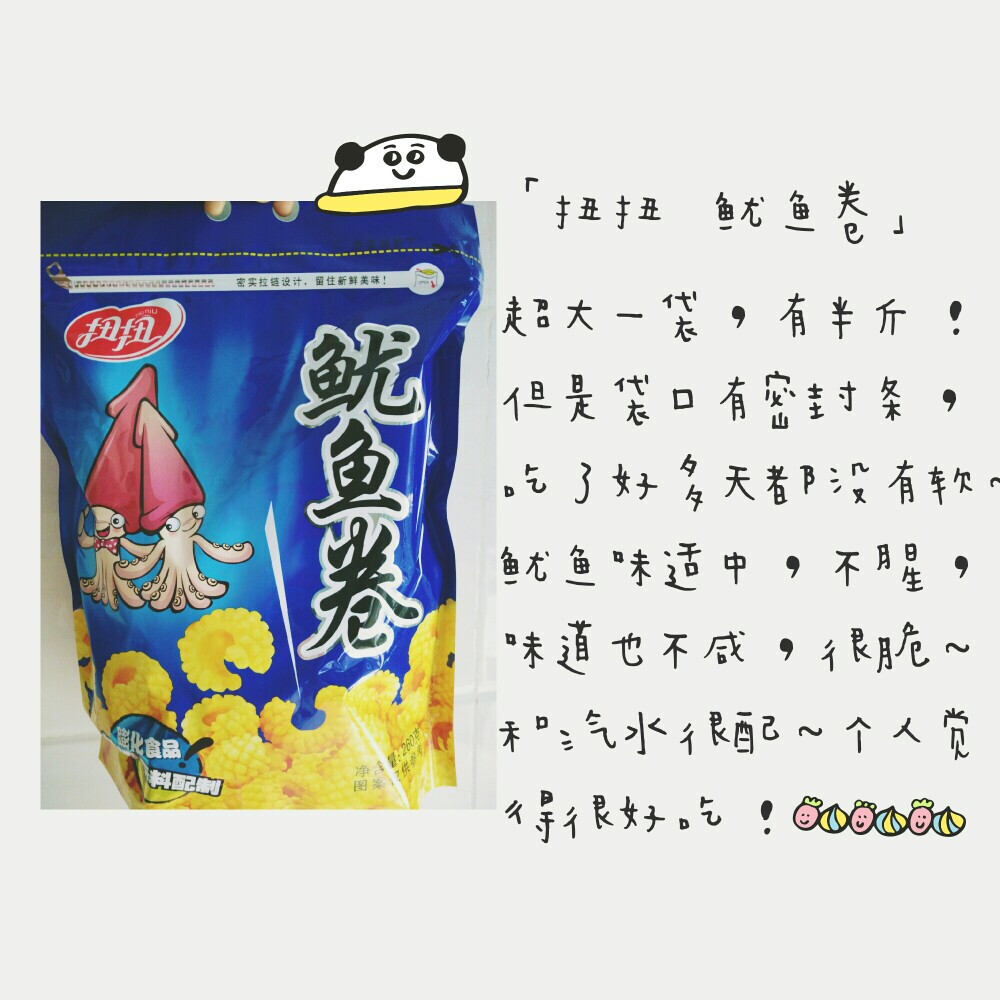 密实拉链设计，留住新鲜美味！
扭扭
niu niu
鱿鱼卷
膨化食品
料配制
净含量：260克
图案仅供参考
「扭扭 鱿鱼卷」
超大一袋，有半斤！
但是袋口有密封条，
吃了好多天都没有软~
鱿鱼味适中，不腥，
味道也不咸，很脆~
和汽水很配~个人觉
得很好吃！